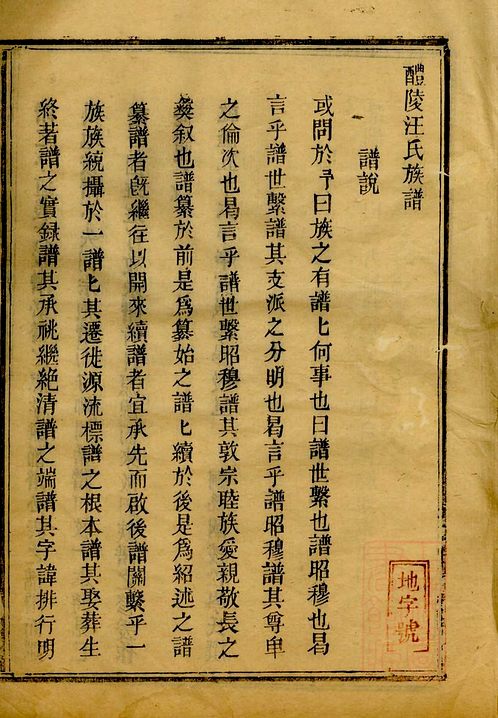 醴陵汪氏族譜
譜說
或問於予曰族之有譜匕何事也曰譜世繫也譜昭穆也曷
言乎譜世繫譜其支派之分明也曷言乎譜昭穆譜其尊卑
之倫次也曷言乎譜世繫昭穆譜其敦宗睦族愛親敬長之
彝叙也譜纂於前是為纂始之譜匕續於後是為紹述之譜
纂譜者旣繼往以開來續譜者宜承先而啟後譜關繫乎一
族族統攝於一譜匕其遷徙源流標譜之根本譜其娶葬生
終著譜之實録譜其承祧繼絶清譜之端譜其字諱排行明
地字號